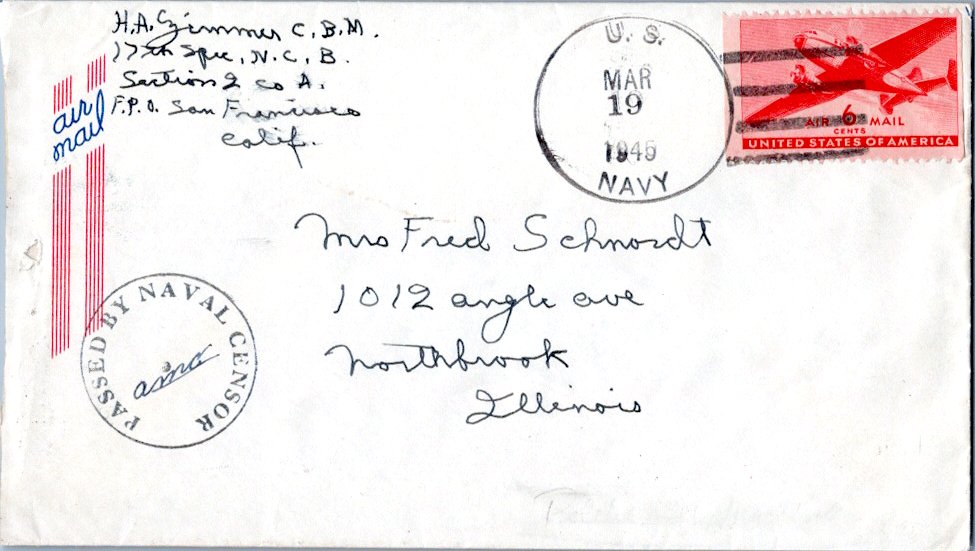 H.A. Zimmer C.B.M.
17th Spec. N.C.B.
Section 2 Co A.
F.P.O. San Francisco
Calif.
air
mail
U. S.
MAR
19
1945
NAVY
AIR 6 MAIL
CENTS
UNITED STATES OF AMERICA
Mrs Fred Schnordt
1012 angle ave
Northbrook
Illinois
PASSED BY NAVAL CENSOR